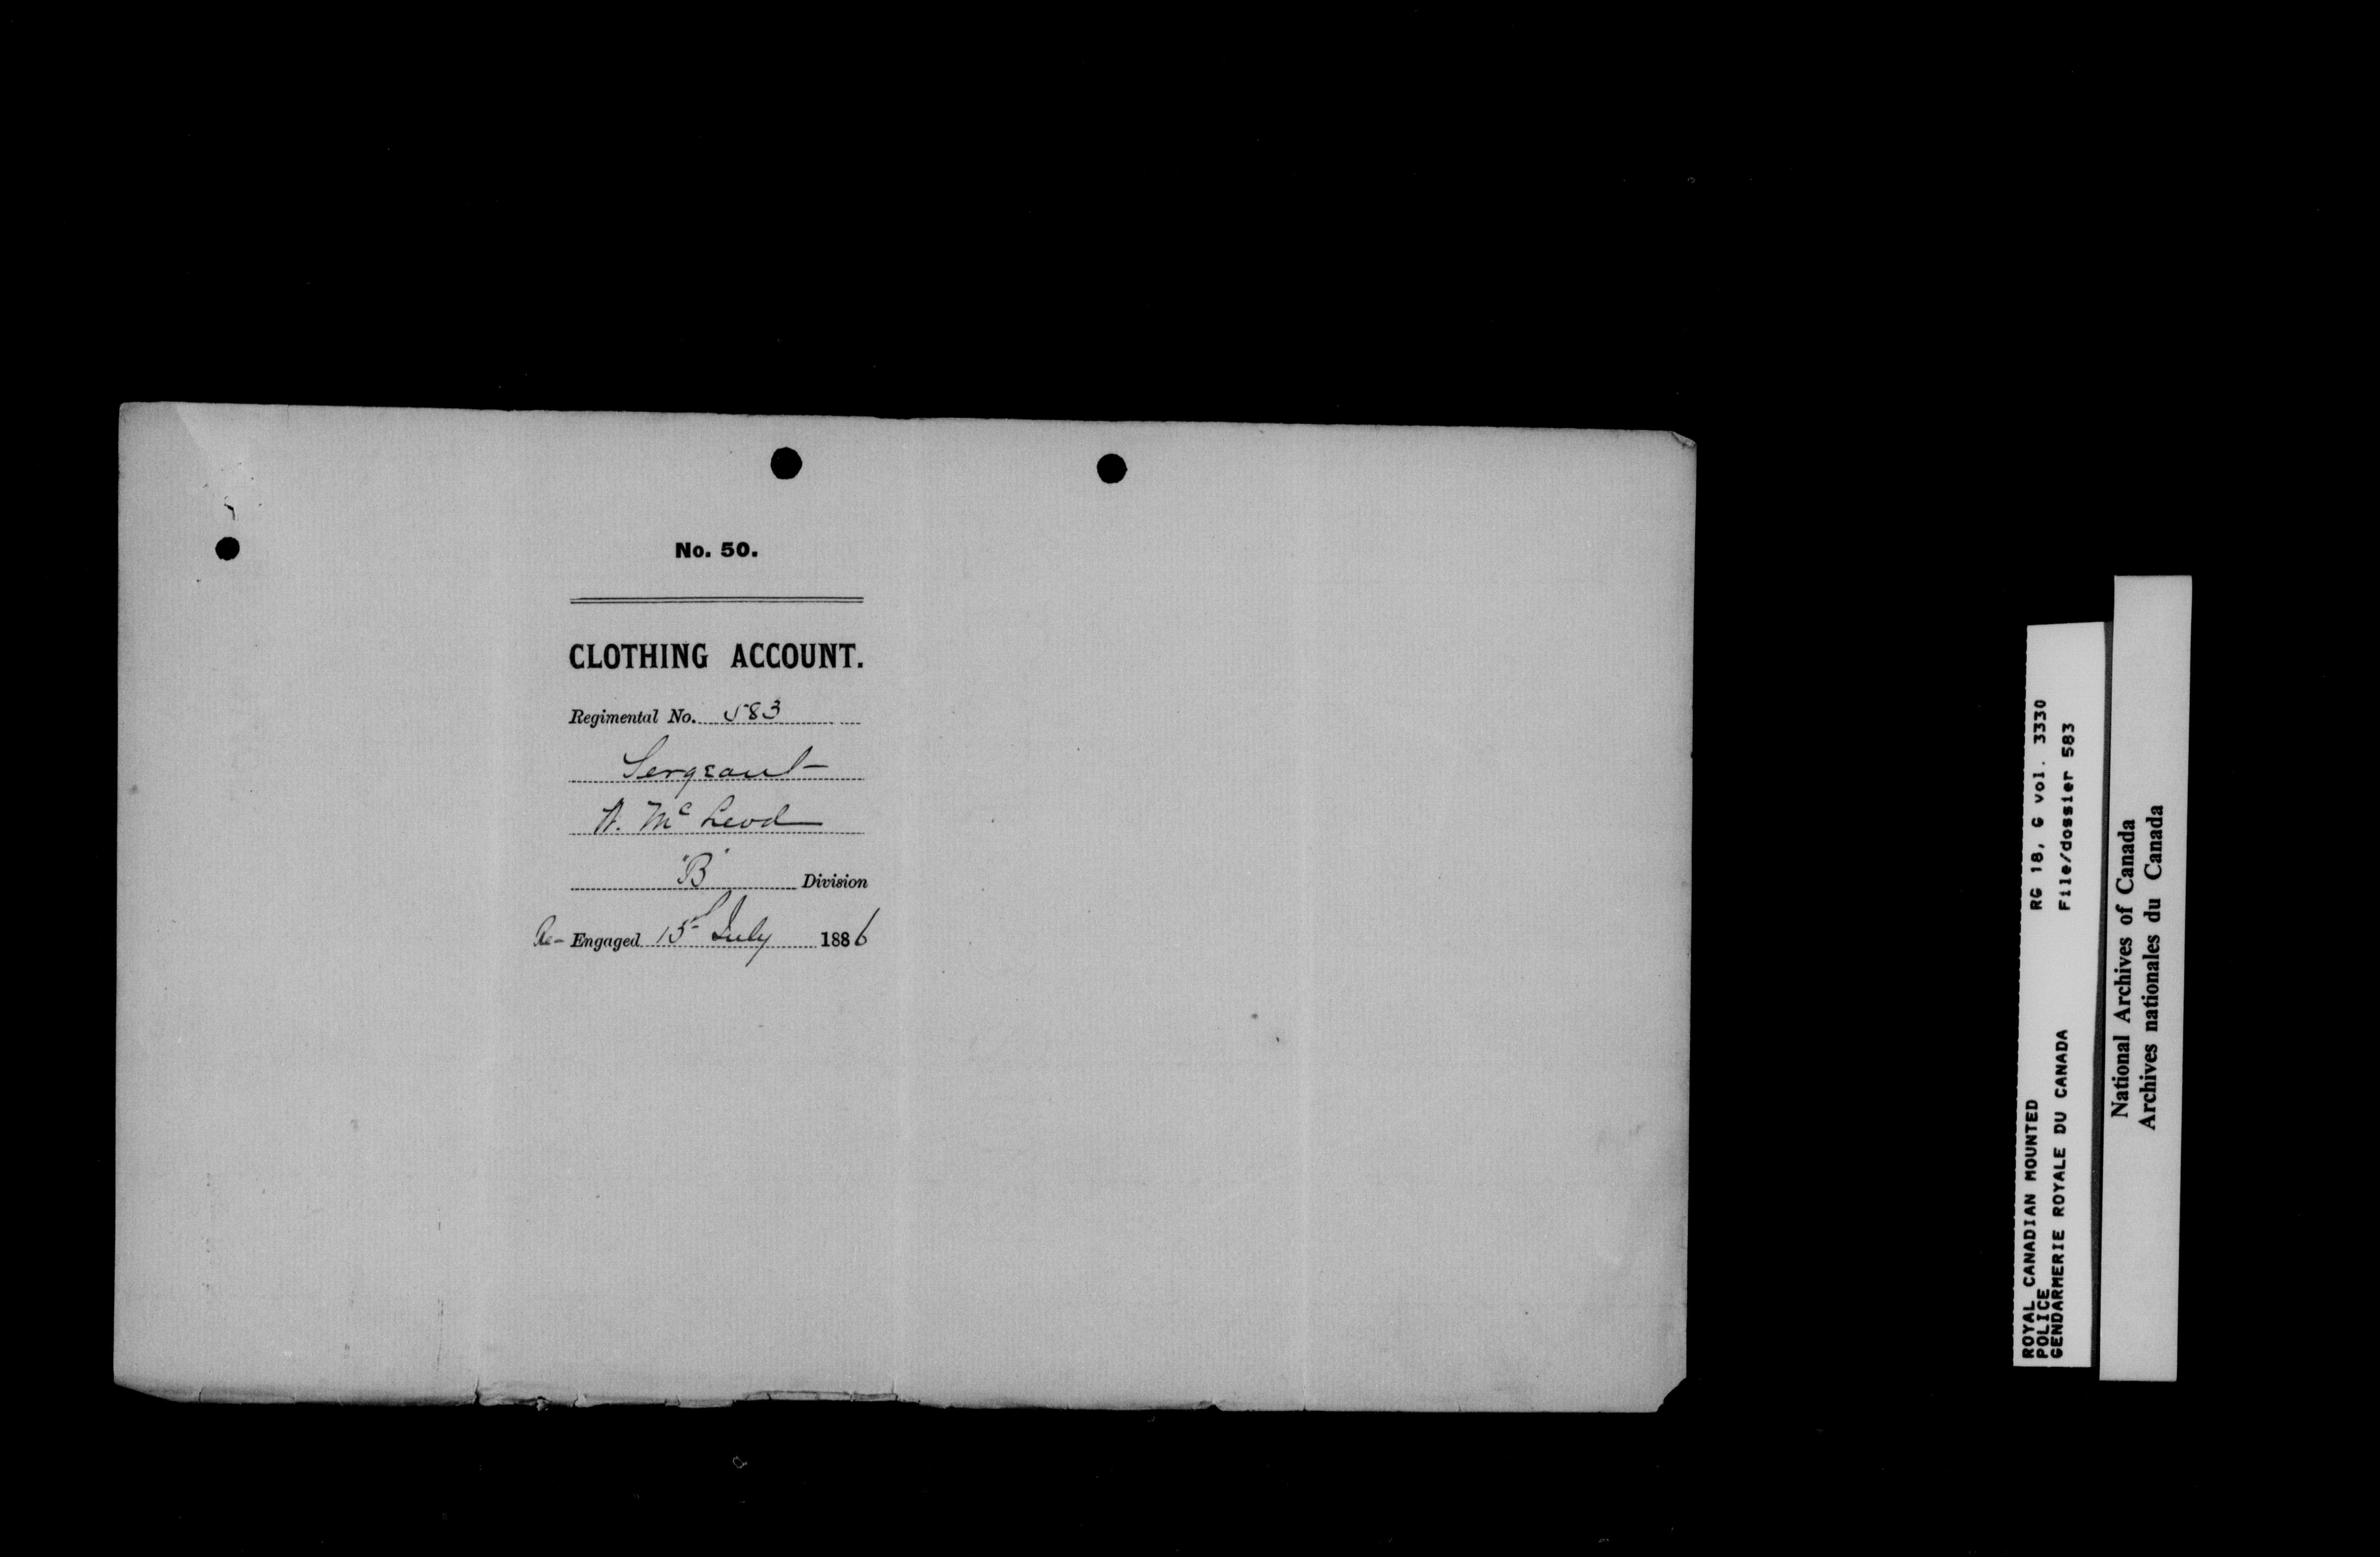 No. 50.
CLOTHING ACCOUNT.
Regimental No. 583
Sergeant
N. Mc Leod
"B" Division
Re- Engaged 15th July 1886
ROYAL CANADIAN MOUNTED
POLICE
GENDARMERIE ROYALE DU CANADA
RG 18, G vol. 3330
File/dossier 583
National Archives of Canada
Archives nationales du Canada